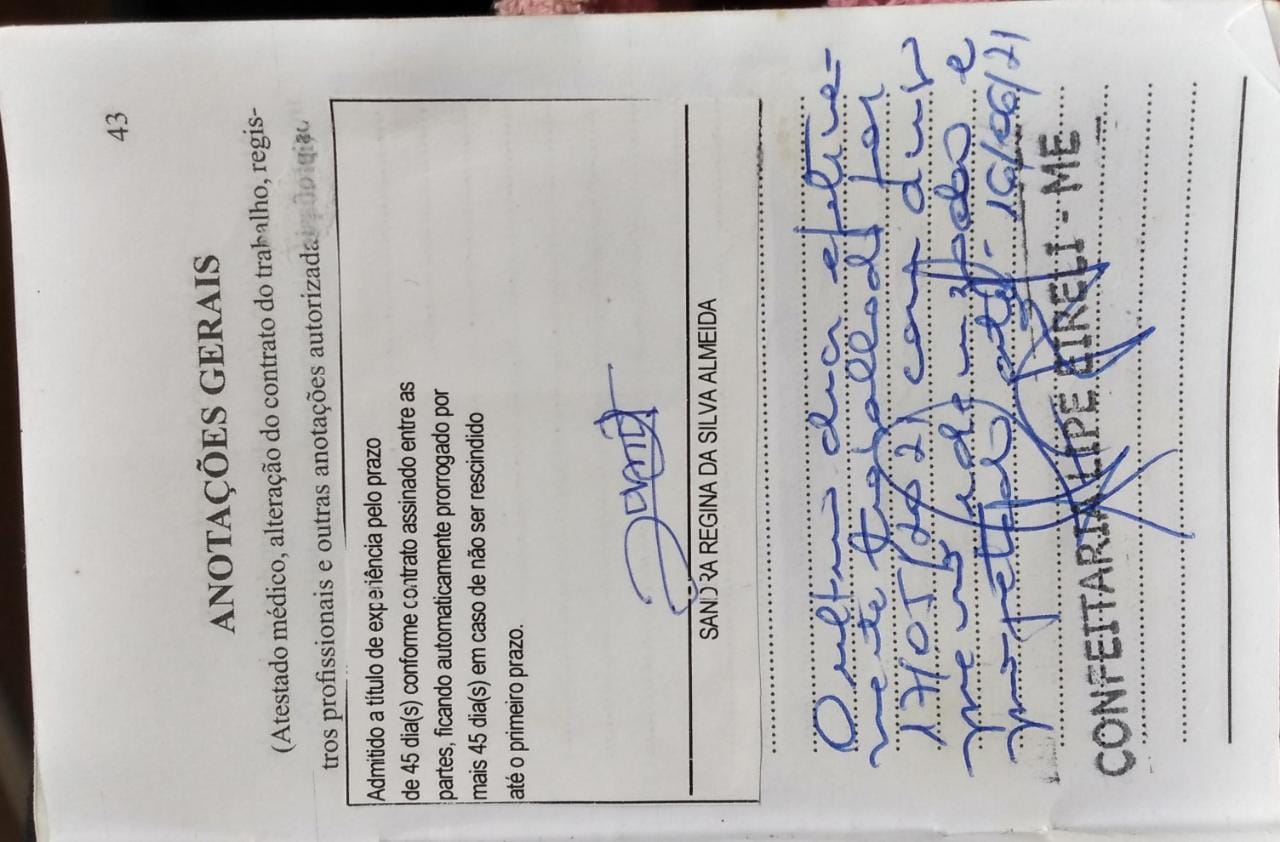 43
ANOTAÇÕES GERAIS
(Atestado médico, alteração do contrato do trabalho, regis-
tros profissionais e outras anotações autorizada
Admitido a título de experiência pelo prazo
de 45 dia(s) conforme contrato assinado entre as
partes, ficando automaticamente prorrogado por
mais 45 dia(s) em caso de não ser rescindido
até o primeiro prazo.
SANDRA REGINA DA SILVA ALMEIDA
O ultimo dia efetiva-
mente trabalhado foi
17/05/2021 com aviso
previo idenizado e
projetado até 16/06/21
CONFEITARIA LIPE EIRELI - ME